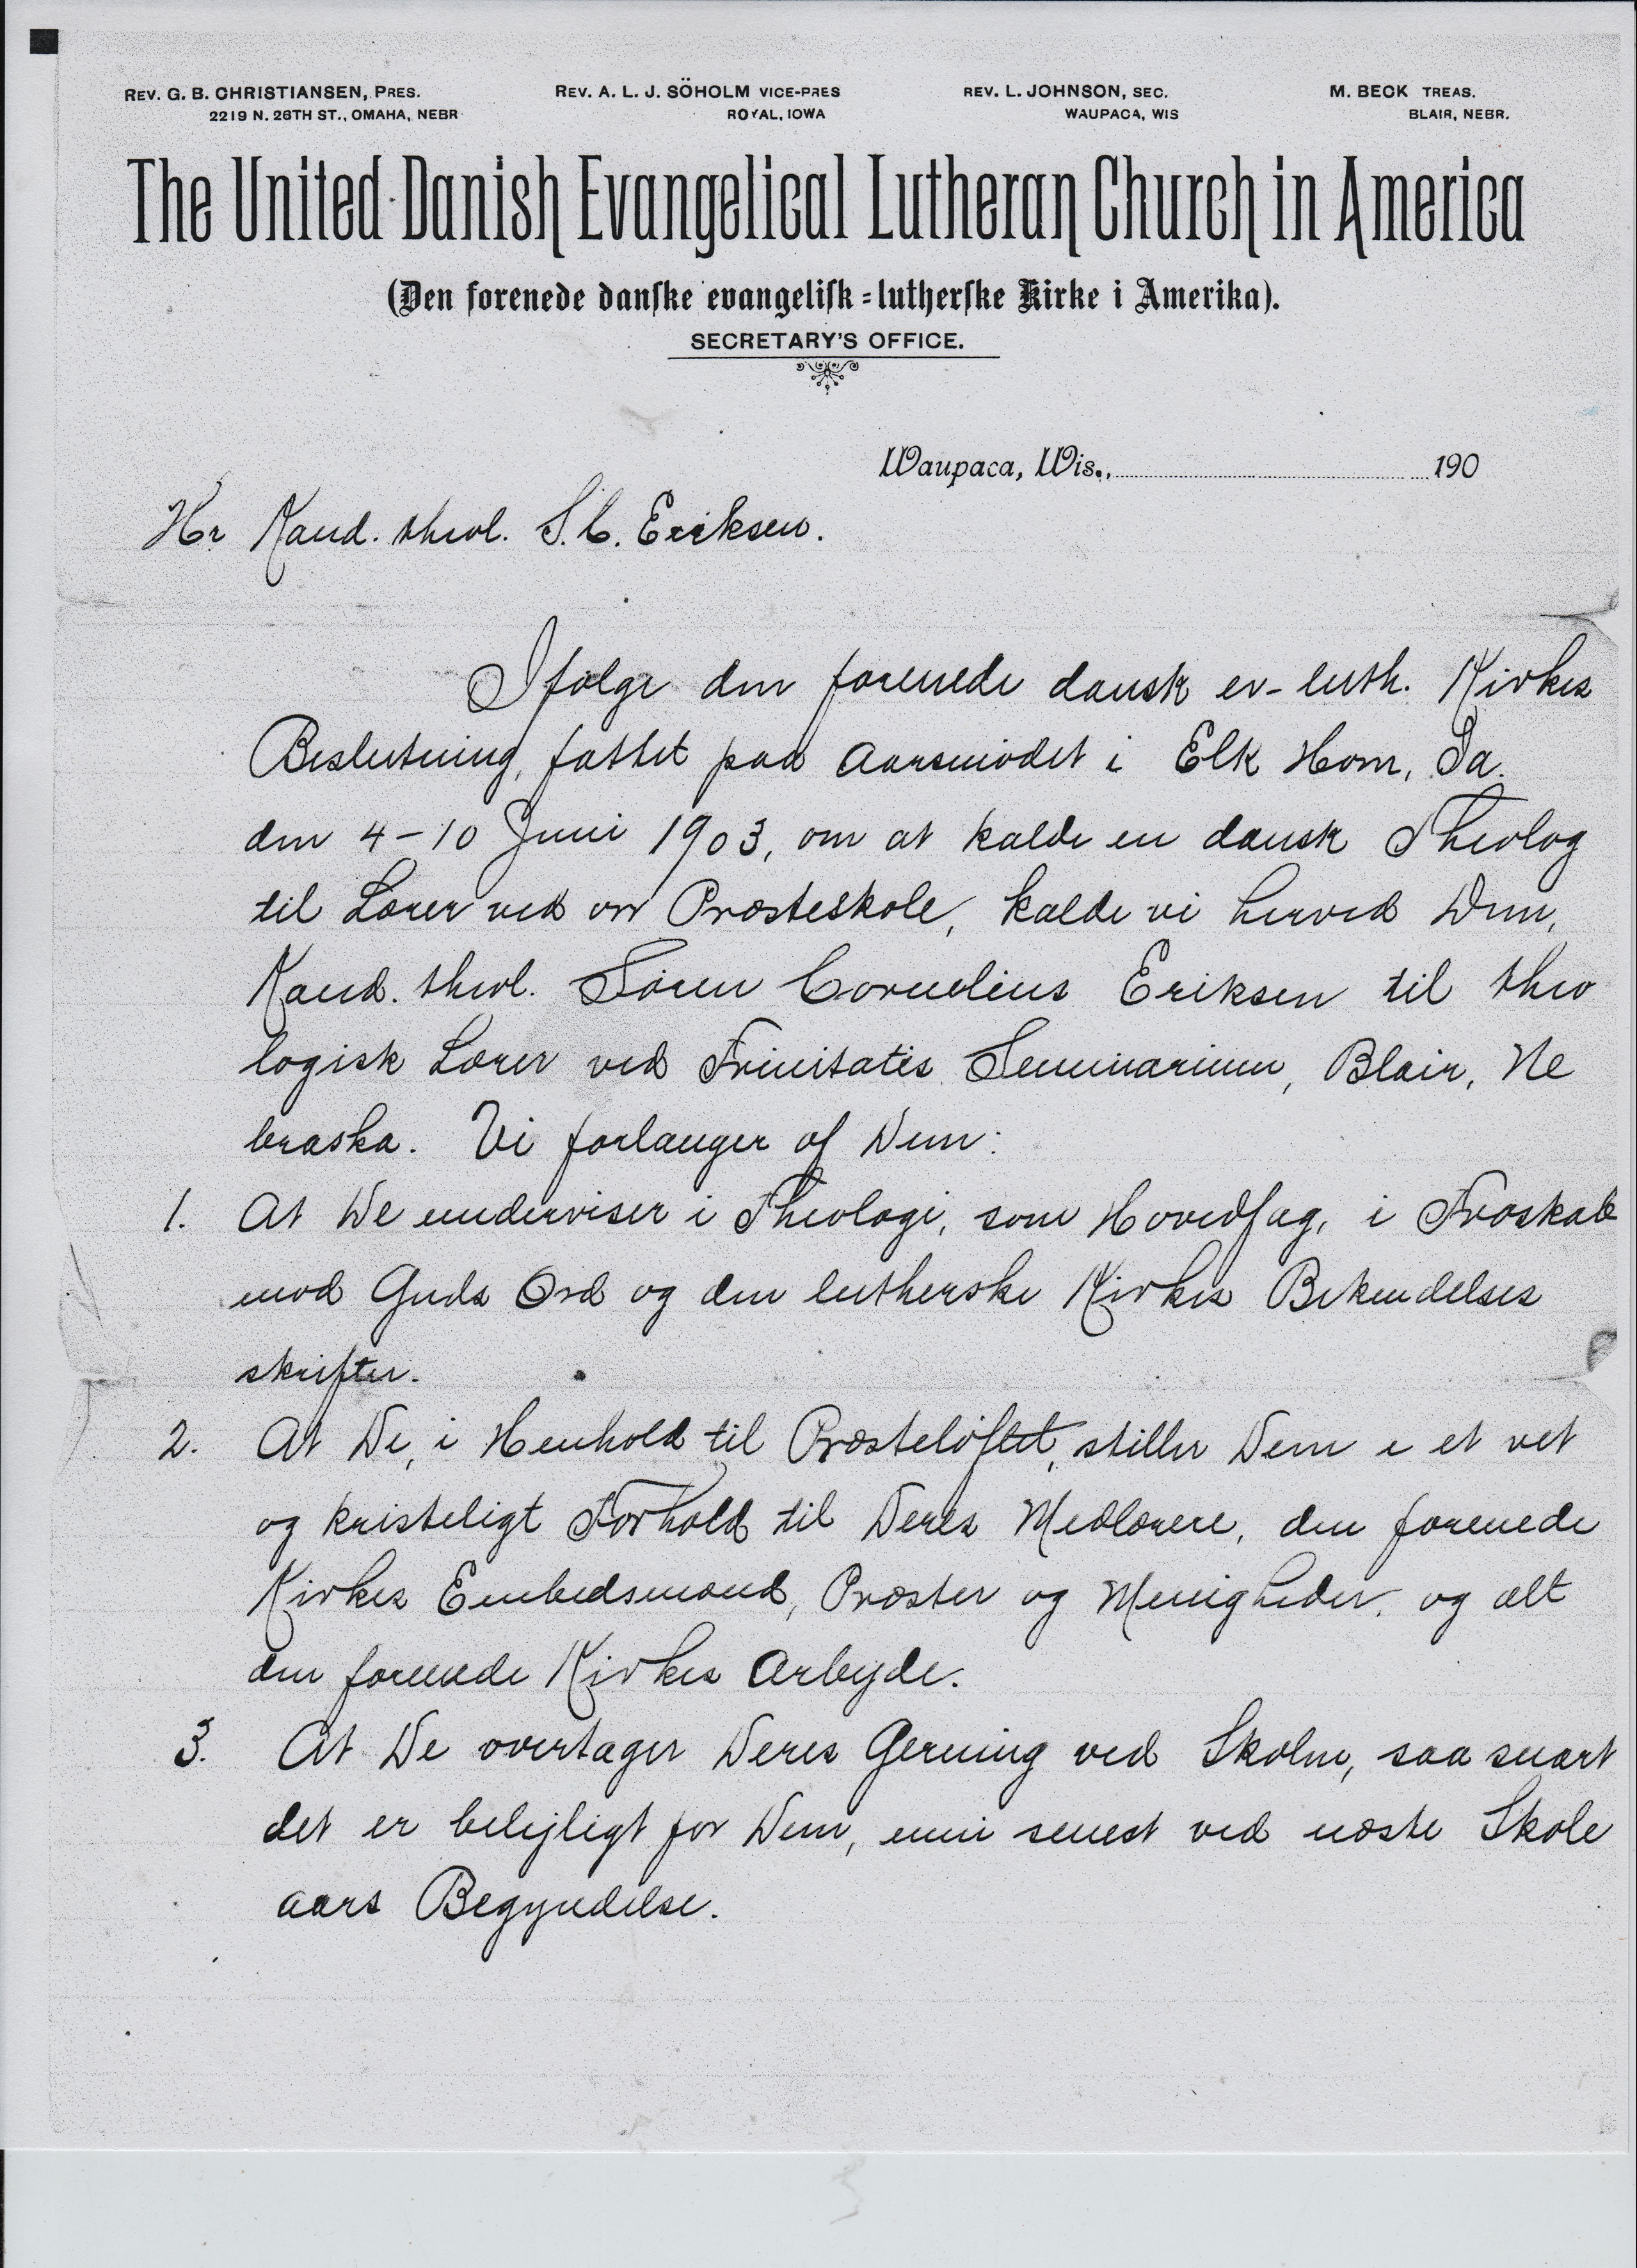 REV. G. B. CHRISTIANSEN, PRES.
2219 N. 26TH ST., OMAHA, NEBR
REV. A. L. J. SÖHOLM VICE-PRES
ROYAL, IOWA
REV. L. JOHNSON, SEC.
WAUPACA, WIS
M. BECK TREAS.
BLAIR, NEBR.
The United Danish Evangelical Lutheran Church in America
(Den forenede danske evangelisk=lutherske Kirke i Amerika).
SECRETARY'S OFFICE.
Waupaca, Wis., 190
Hr Kand. theol. S. C. Eriksen.
Ifølge den forenede dansk ev-luth. Kirkes
Beslutning, fattet paa Aarsmødet i Elk Horn, Ia.
den 4-10 Juni 1903, om at kalde en dansk Theolog
til Lærer ved vor Præsteskole, kalde vi herved Dem,
Kand. theol. Søren Cornelius Eriksen til theo
logisk Lærer ved Trinitatis Seminarium, Blair, Ne
braska. Vi forlanger af Dem:
1. At De underviser i Theologi, som Hovedfag, i Troskab
mod Guds Ord og den lutherske Kirkes Bekendelses
skrifter.
2. At De, i Henhold til Præsteløftet, stiller Dem i et ret
og kristeligt Forhold til Deres Medlærere, den forenede
Kirkes Embedsmænd, Præster og Menigheder, og alt
den forenede Kirkes Arbejde.
3. At De overtager Deres Gerning ved Skolen, saa snart
det er belejligt for Dem, men senest ved næste Skole
aars Begyndelse.